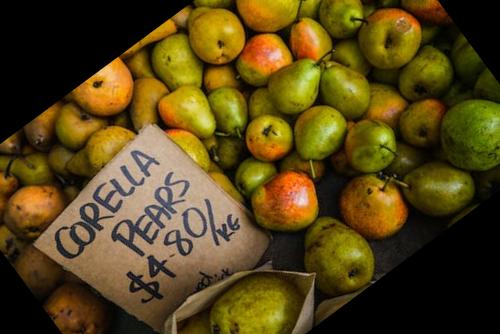 CORELLA
PEARS
$4.80/KG